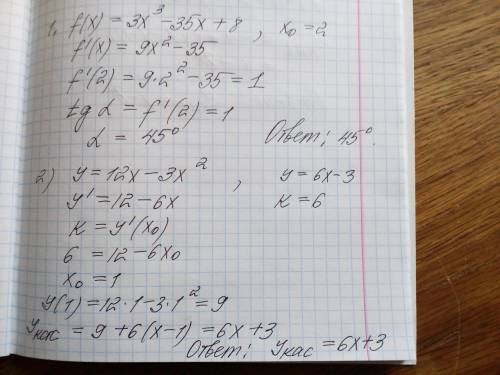 1. f(x) = 3x³ - 35x + 8 , x₀ = 2
f'(x) = 9x² - 35
f'(2) = 9·2² - 35 = 1
tg α = f'(2) = 1
α = 45° Ответ: 45°.
2) y = 12x - 3x² , y = 6x - 3
y' = 12 - 6x k = 6
k = y'(x₀)
6 = 12 - 6x₀
x₀ = 1
y(1) = 12·1 - 3·1² = 9
y кас = 9 + 6(x - 1) = 6x + 3
Ответ: y кас = 6x + 3